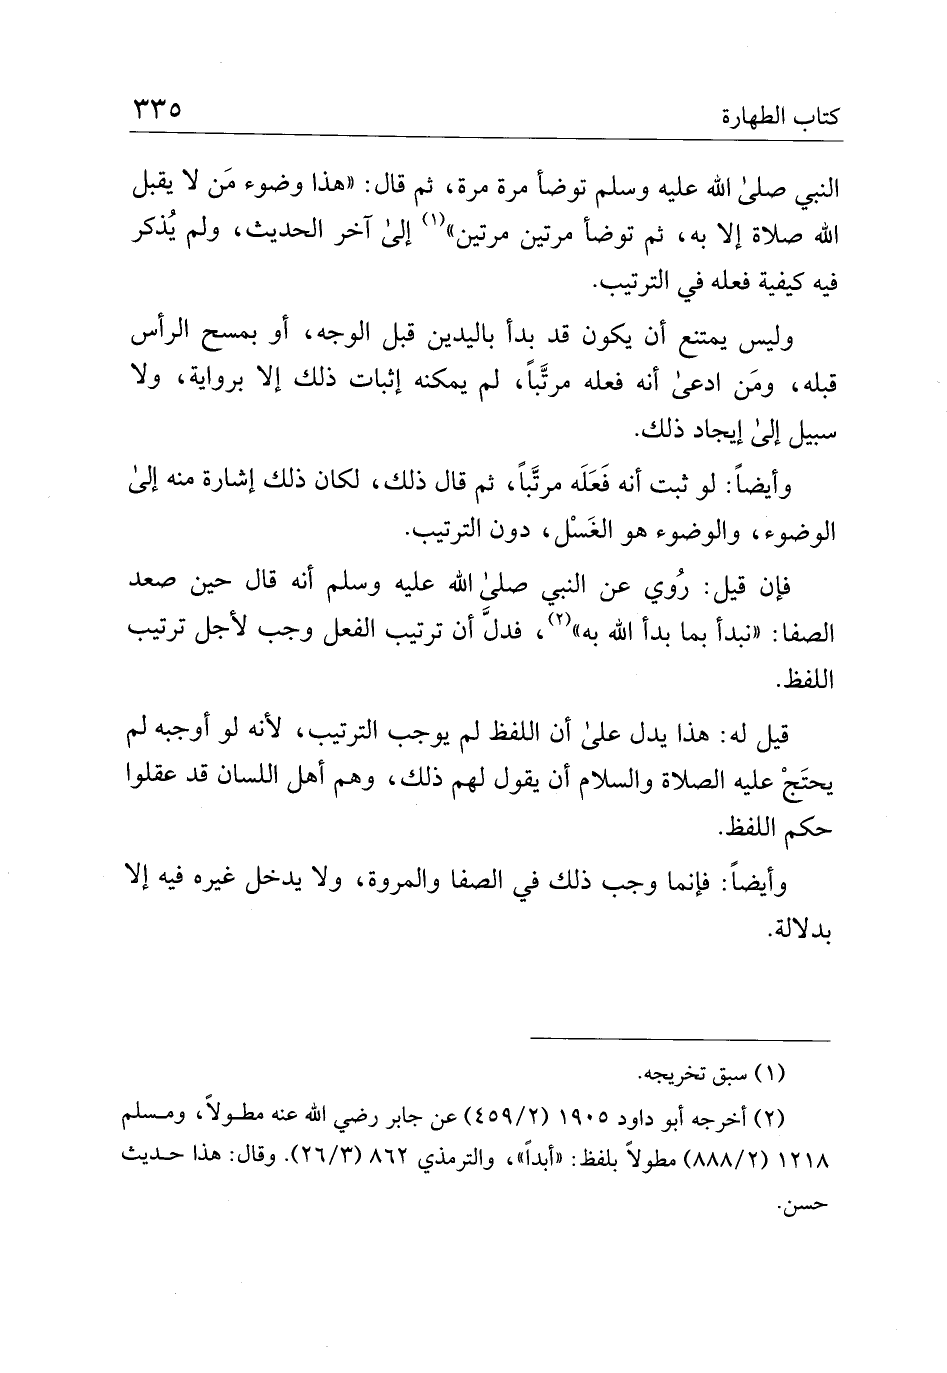 كتاب الطهارة ٣٣٥
النبي صلىٰ الله عليه وسلم توضأ مرة مرة، ثم قال: «هذا وضوء مَن لا يقبل
الله صلاة إلا به، ثم توضأ مرتين مرتين»(١) إلىٰ آخر الحديث، ولم يُذكر
فيه كيفية فعله في الترتيب.
وليس يمتنع أن يكون قد بدأ باليدين قبل الوجه، أو بمسح الرأس
قبله، ومَن ادعىٰ أنه فعله مرتَّباً، لم يمكنه إثبات ذلك إلا برواية، ولا
سبيل إلىٰ إيجاد ذلك.
وأيضاً: لو ثبت أنه فَعَلَه مرتَّباً، ثم قال ذلك، لكان ذلك إشارة منه إلىٰ
الوضوء، والوضوء هو الغَسْل، دون الترتيب.
فإن قيل: رُوي عن النبي صلىٰ الله عليه وسلم أنه قال حين صعد
الصفا: «نبدأ بما بدأ الله به»(٢)، فدلَّ أن ترتيب الفعل وجب لأجل ترتيب
اللفظ.
قيل له: هذا يدل علىٰ أن اللفظ لم يوجب الترتيب، لأنه لو أوجبه لم
يحتَجْ عليه الصلاة والسلام أن يقول لهم ذلك، وهم أهل اللسان قد عقلوا
حكم اللفظ.
وأيضاً: فإنما وجب ذلك في الصفا والمروة، ولا يدخل غيره فيه إلا
بدلالة.
(١) سبق تخريجه.
(٢) أخرجه أبو داود ١٩٠٥ (٤٥٩/٢) عن جابر رضي الله عنه مطولاً، ومسلم
١٢١٨ (٨٨٨/٢) مطولاً بلفظ: «أبدأ»، والترمذي ٨٦٢ (٢٦/٣). وقال: هذا حديث
حسن.